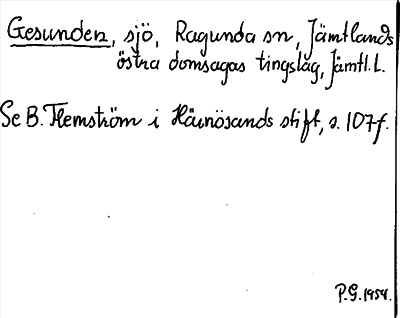 Gesunden, sjö, Ragunda sn, Jämtlands
östra domsagas tingslag, Jämtl. L.
Se B. Flemström i Härnösands stift, s. 107f.
P.G. 1954.